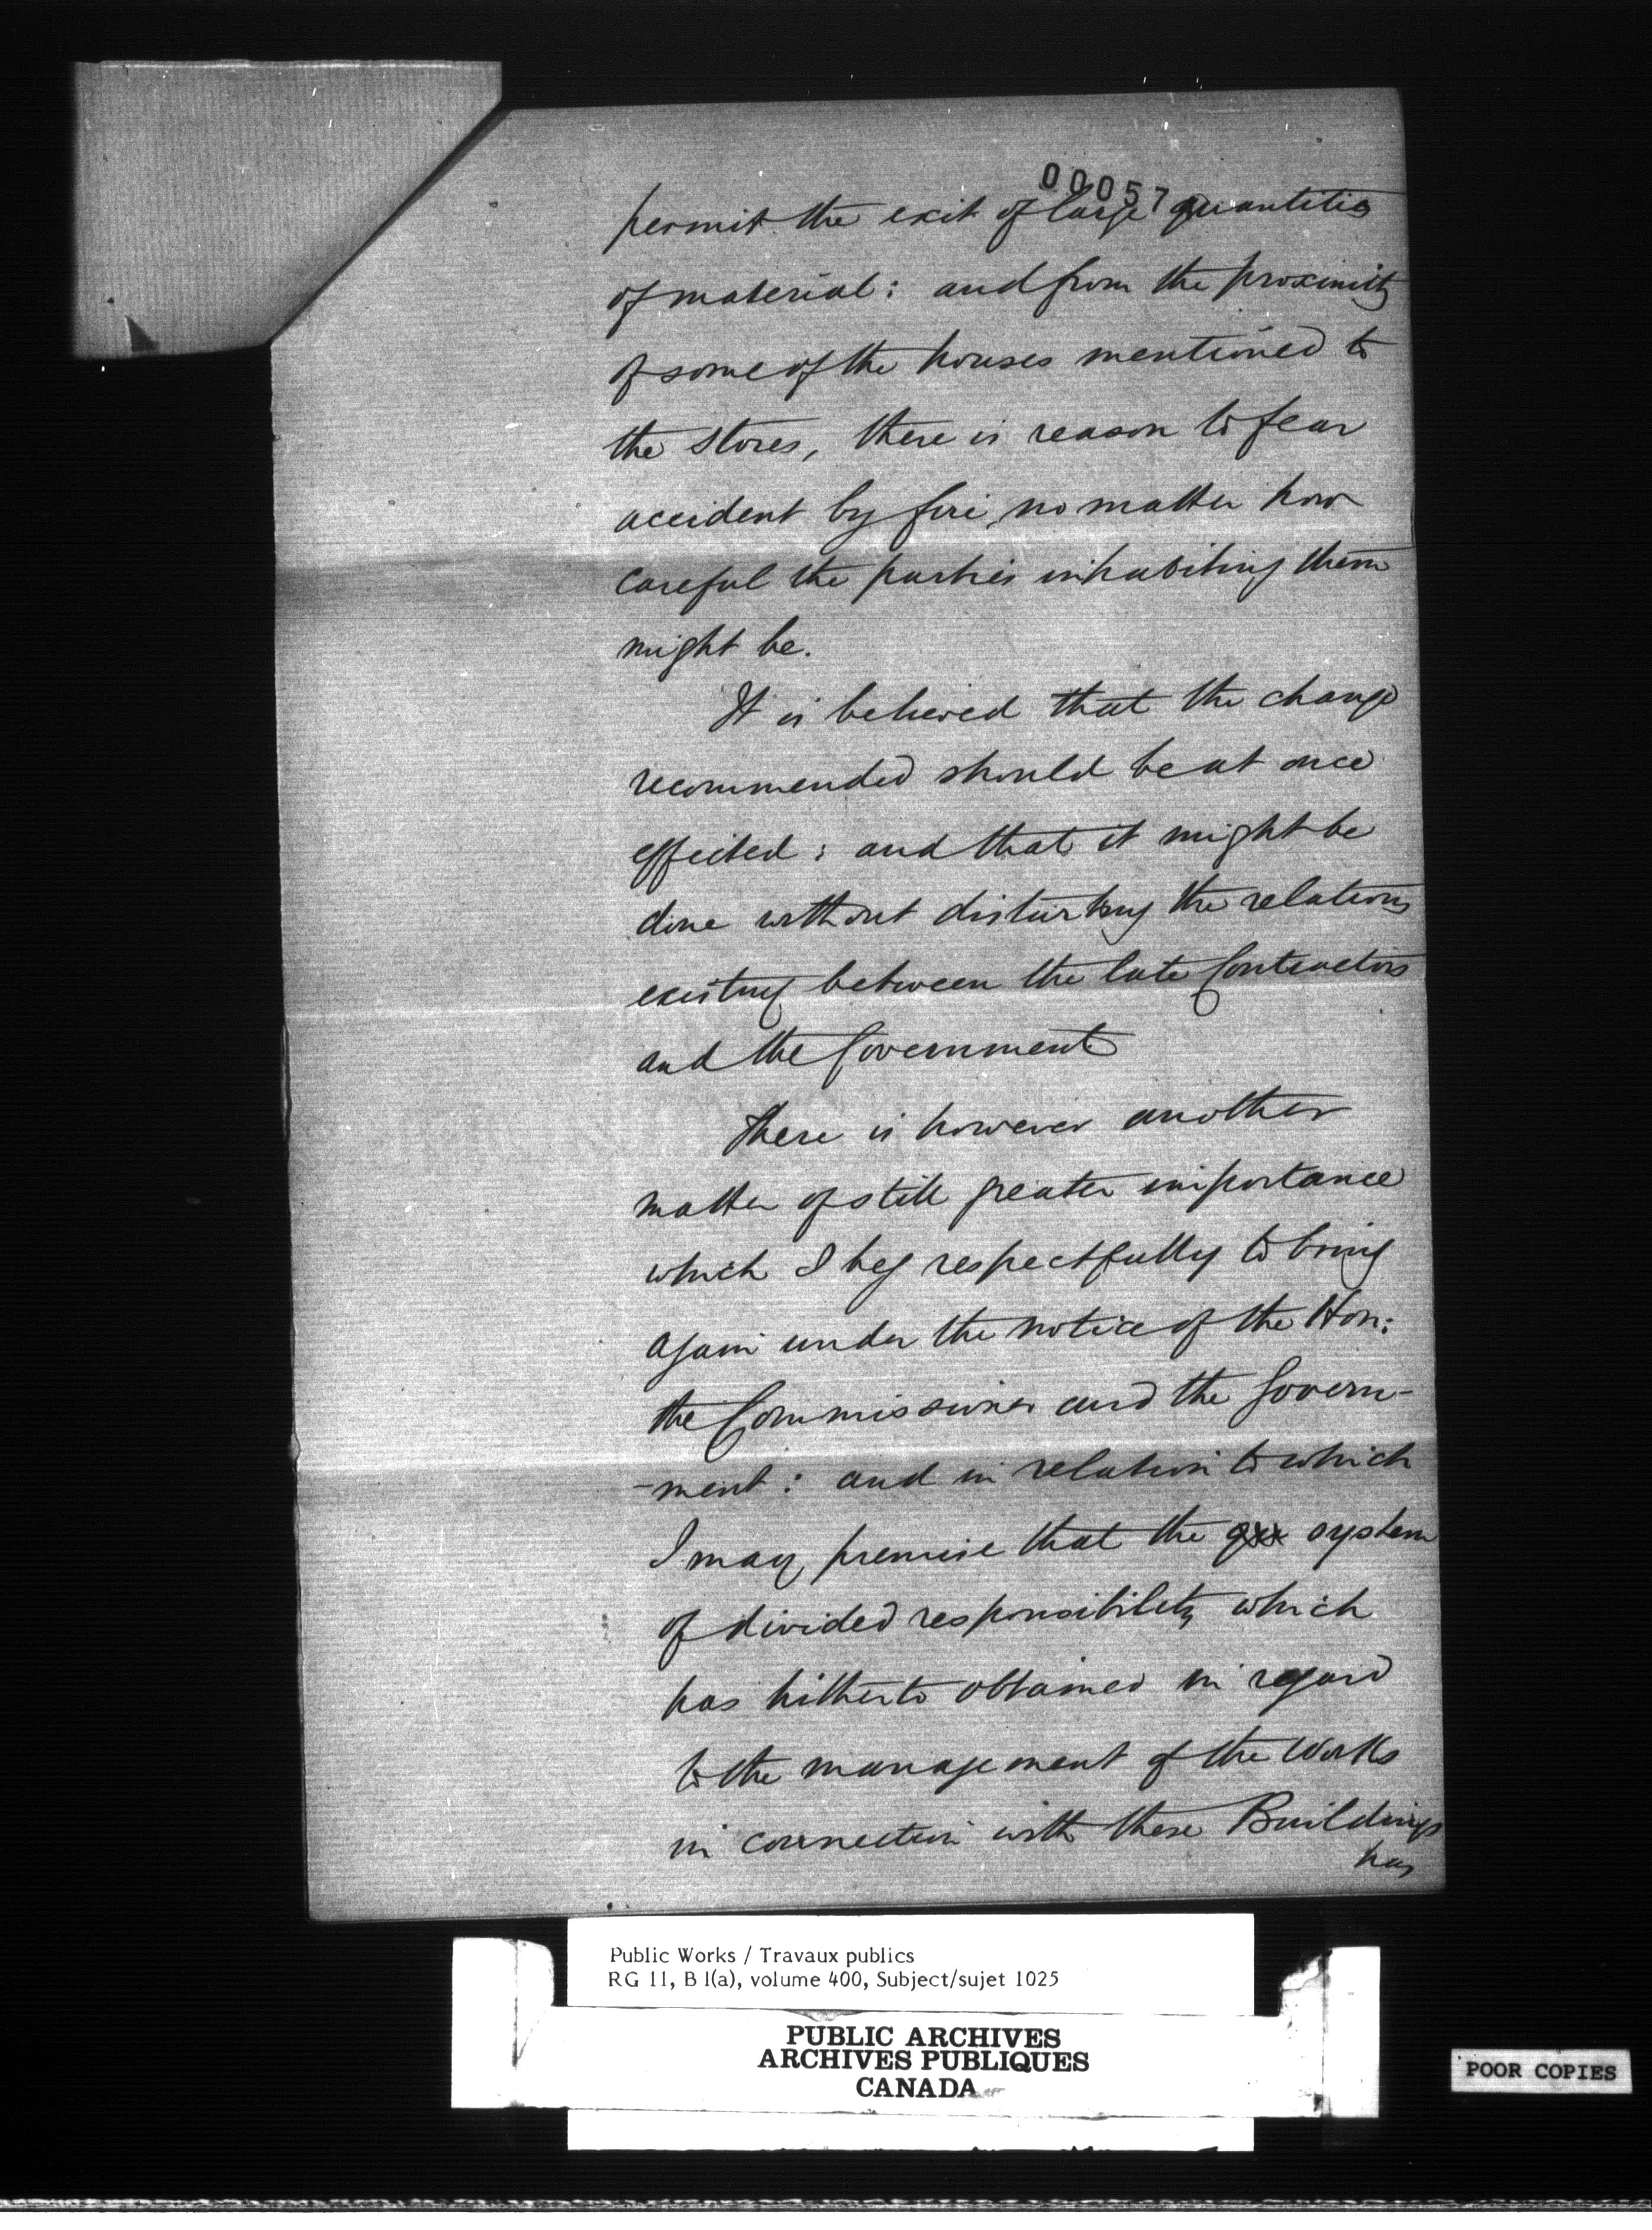 00057
permit the exit of large quantities
of material: and from the proximity
of some of the houses mentioned to
the stores, there is reason to fear
accident by fire, no matter how
careful the parties inhabiting them
might be.
It is believed that the change
recommended should be at once
effected; and that it might be
done without disturbing the relations
existing between the late Contractors
and the Government
There is however another
matter of still greater importance
which I beg respectfully to bring
again under the notice of the Hon:
the Commissioner and the Govern-
-ment: and in relation to which
I may premise that the system
of divided responsibility which
has hitherto obtained in regard
to the management of the Works
in connection with these Buildings
has
Public Works / Travaux publics
RG 11, B 1(a), volume 400, Subject/sujet 1025
PUBLIC ARCHIVES
ARCHIVES PUBLIQUES
CANADA
POOR COPIES